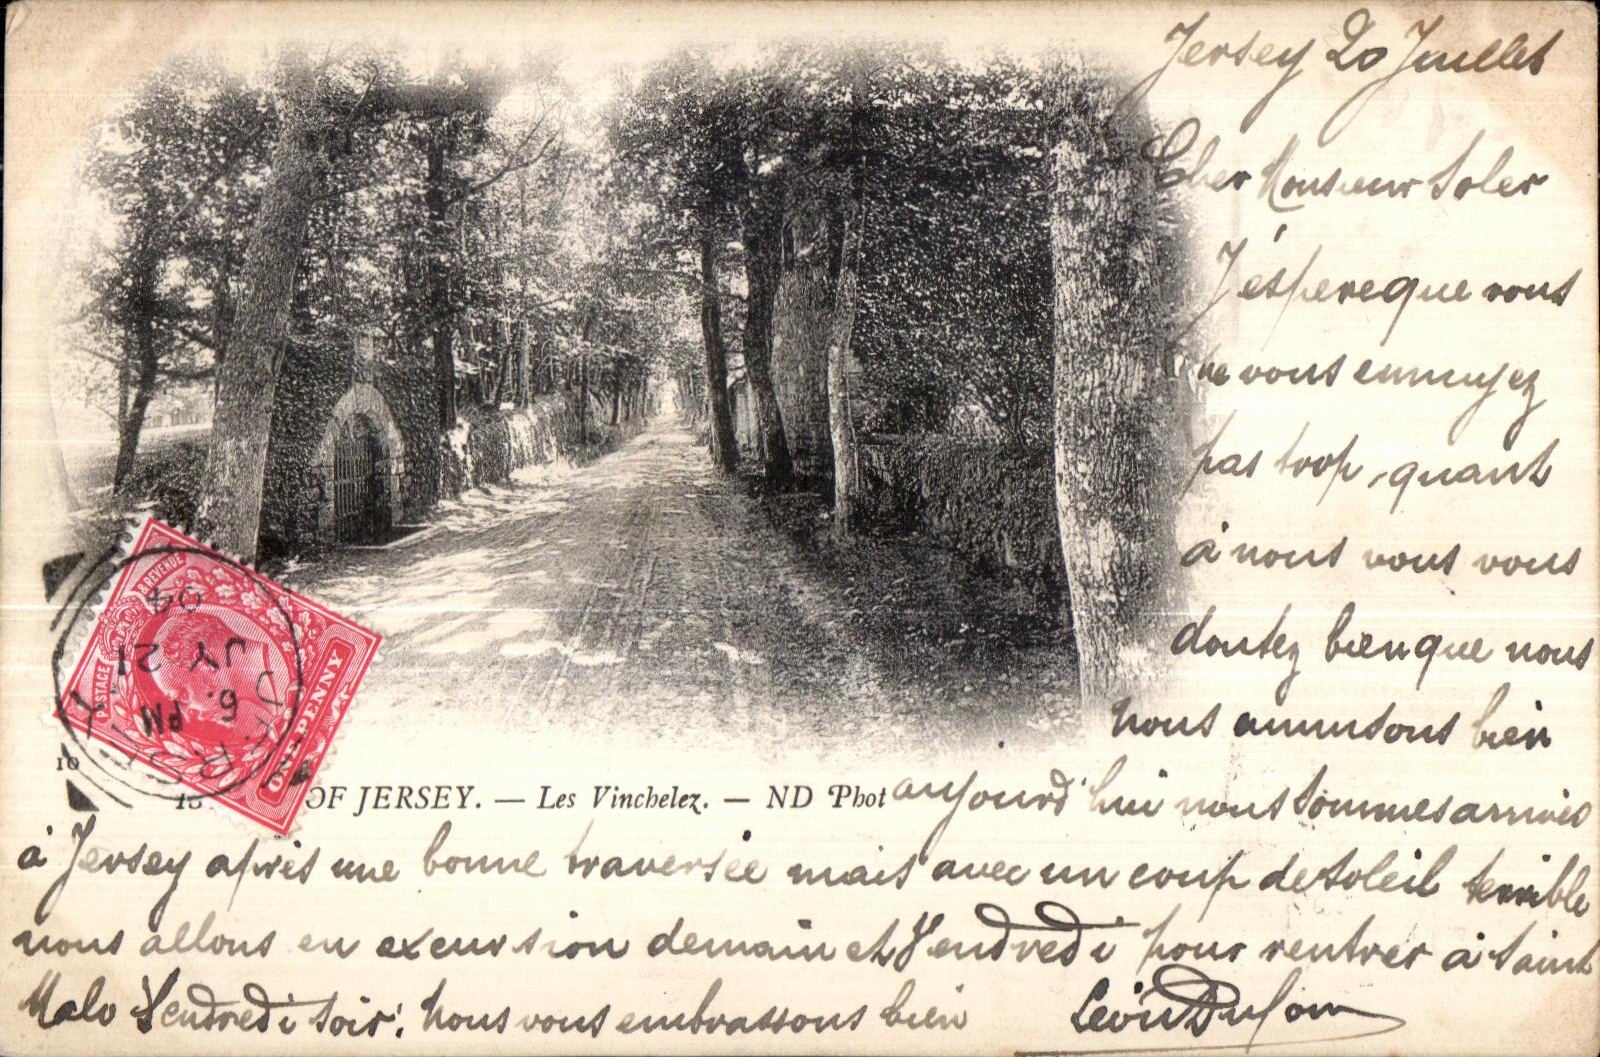 Jersey 20 Juillet
Cher Monsieur Soler
J'éspere que vous
ne vous ennuyez
pas trop, quant
à nous vous vous
doutez bien que nous
nous amusons bien
aujourd'hui nous sommes arrivés
à Jersey après une bonne traversée mais avec un coup de Soleil terrible
nous allons en excursion demain et Vendredi pour rentrer à Saint
Malo Vendredi soir. Nous vous embrassons bien
Léon
POSTAGE & REVENUE
ONE PENNY
JERSEY
6. PM
JY 21
04
10
OF JERSEY. — Les Vinchelez. — ND Phot